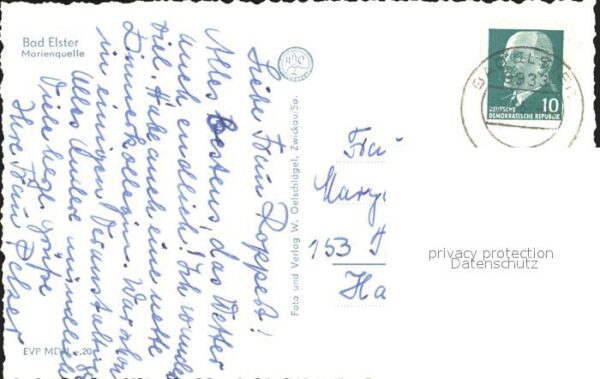 Bad Elster
Marienquelle
Liebe Frau Roppelt!
Alles Bestens, das Wetter
auch endlich! Ich wandere
viel. Habe auch eine nette
Zimmerkollegin. War schon
in einigen Veranstaltg.
Alles Andere mündlich
Viele herzl. Grüße
Ihre Frau
Foto und Verlag W. Oelschlägel, Zwickau/Sa.
EVP MDN -,20
Frau
153
Ha
DEUTSCHE
DEMOKRATISCHE REPUBLIK
10
privacy protection
Datenschutz